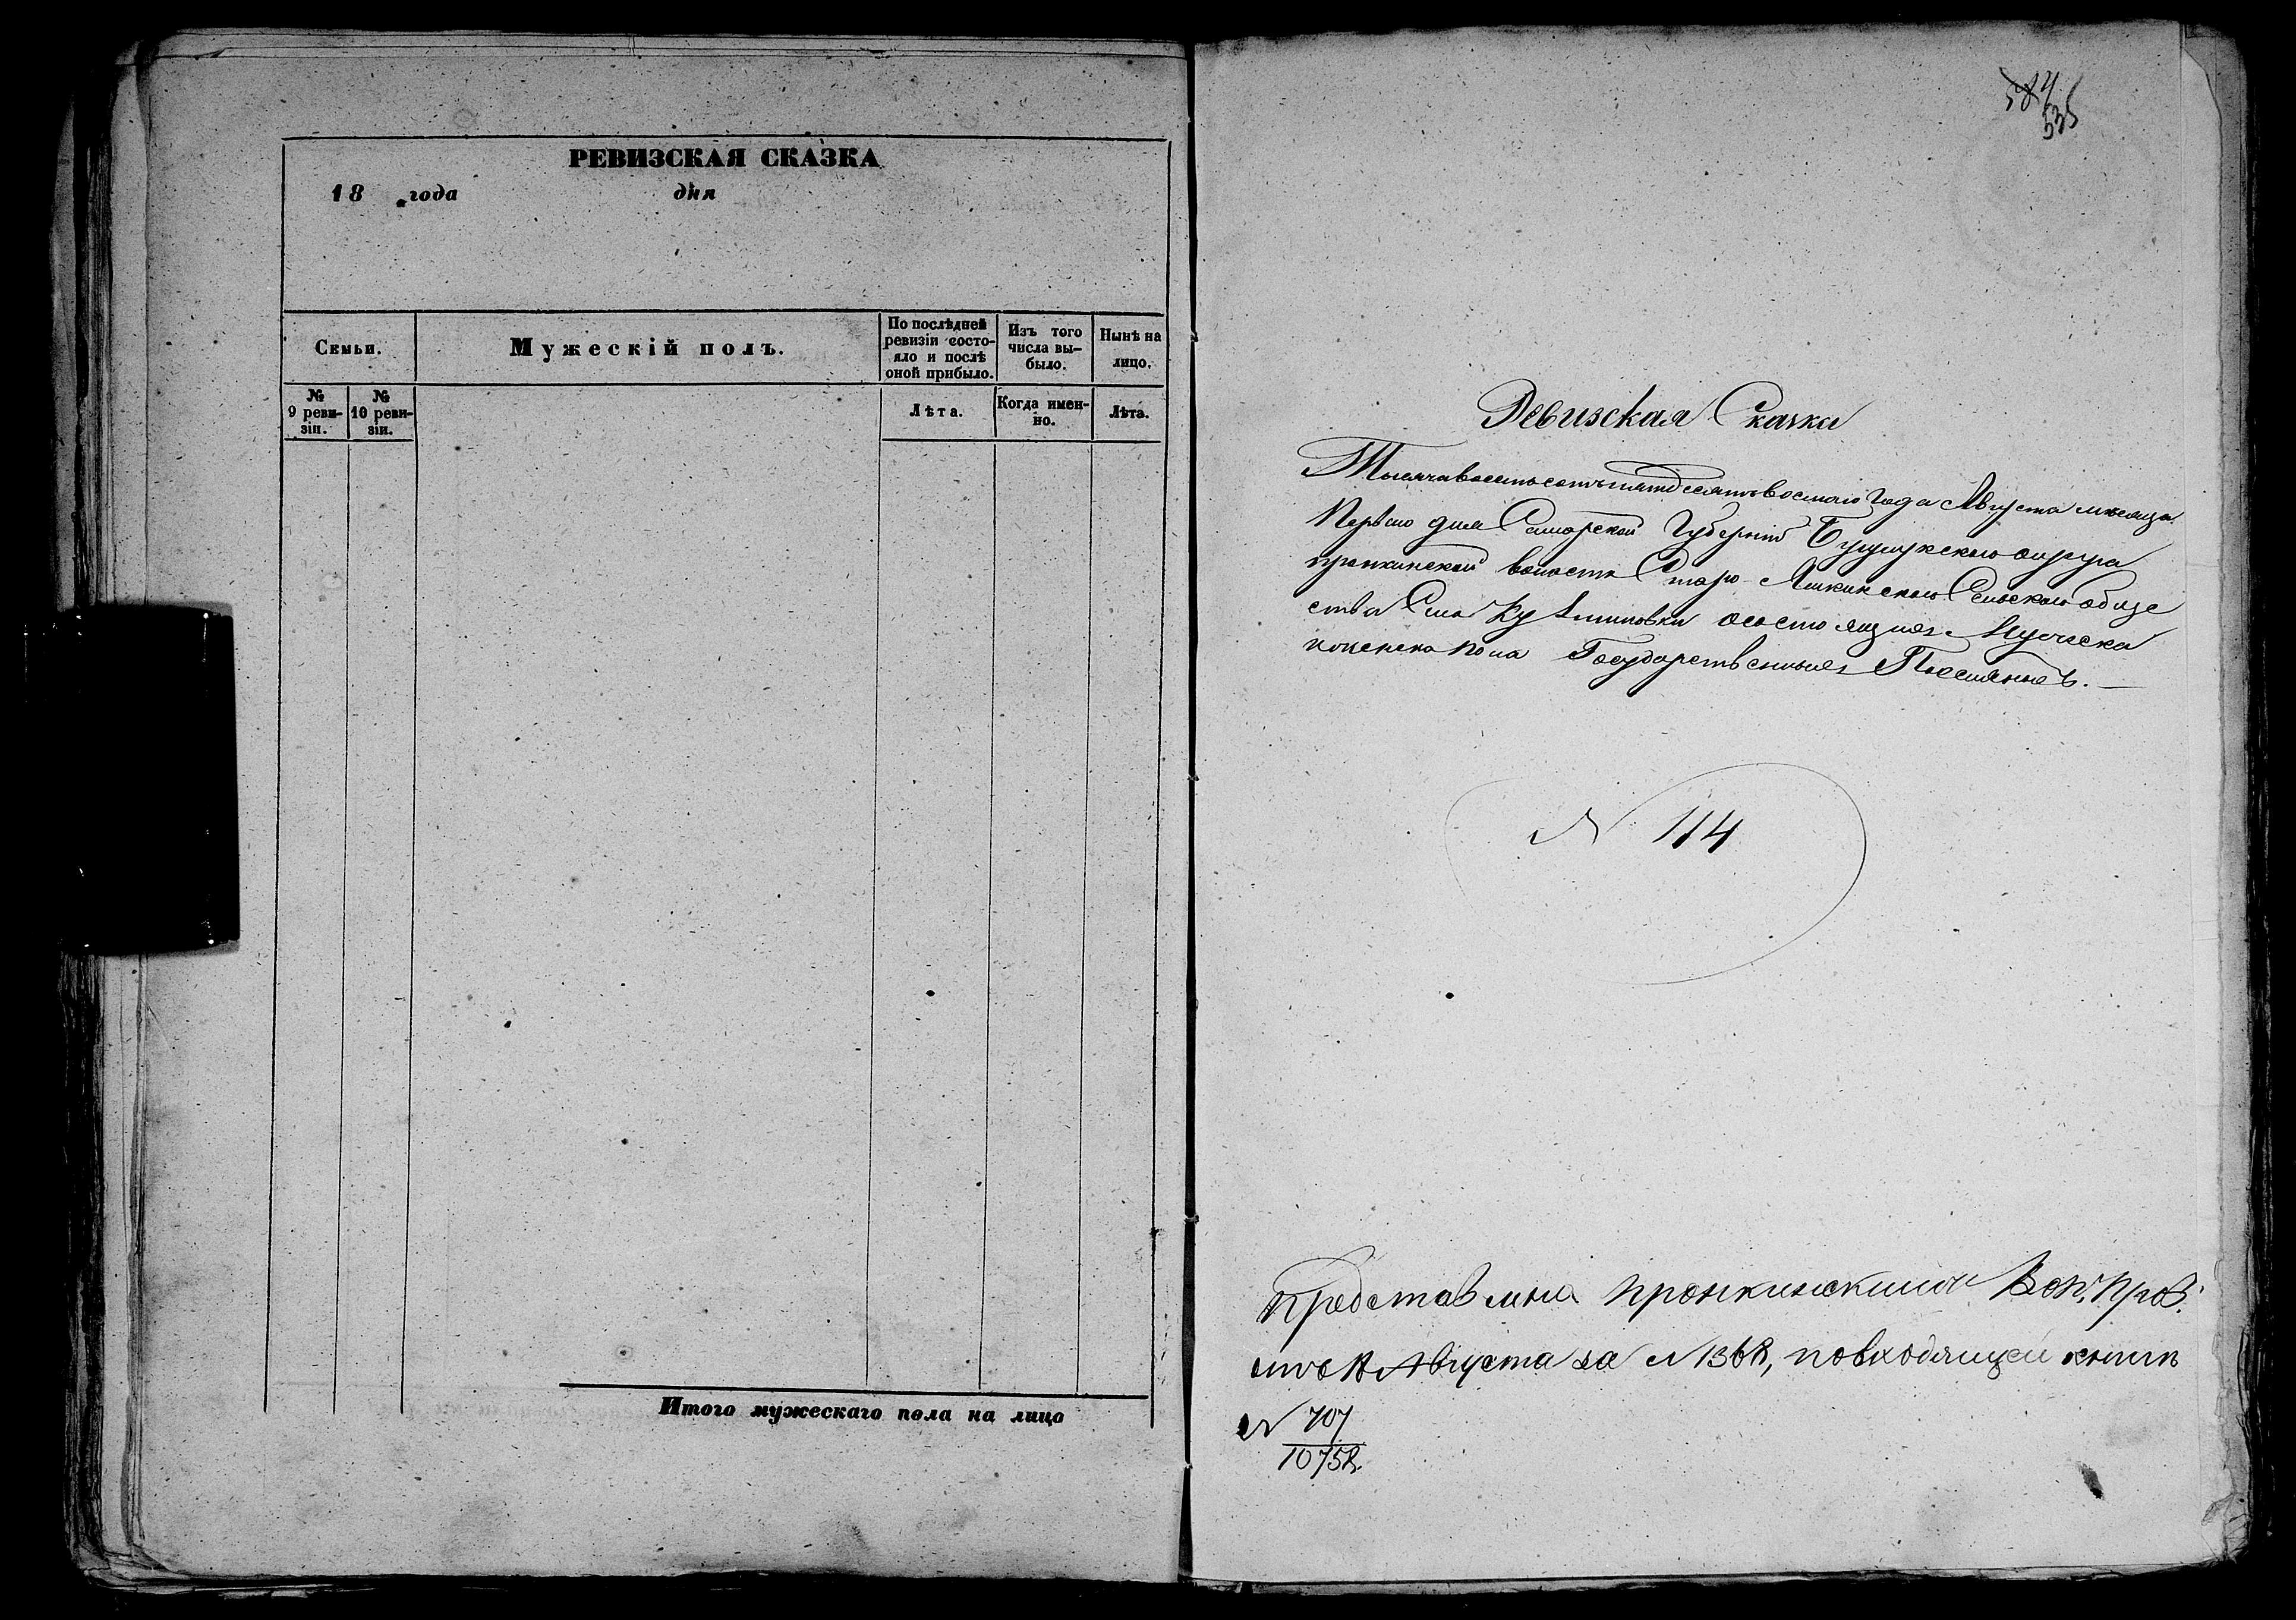 РЕВИЗСКАЯ СКАЗКА
18 года дня
Семьи.
Мужескій полъ.
По послѣдней ревизіи состо-
яло и послѣ
оной прибыло.
Изъ того
числа вы-
было.
Нынѣ на
лицо.
№
9 реви-
зіи.
№
10 реви-
зіи.
Лѣта.
Когда имен-
но.
Лѣта.
Итого мужескаго пола на лицо
584
535
Ревизская Сказка
Тысяча восемьсотъ пятьдесятъ восмаго Года Августа месяца
Первого дня Самарской Губерніи Бузулукского округа
пронкинской волости Старо Сельского обще
ства Села состоящих Мужеска
и женска пола Государственных Поселянъ.
N 114
Представлена Пронкинскимъ Вол. Прав.
Августа за N 1368, по входящей книге
N 707
10758.